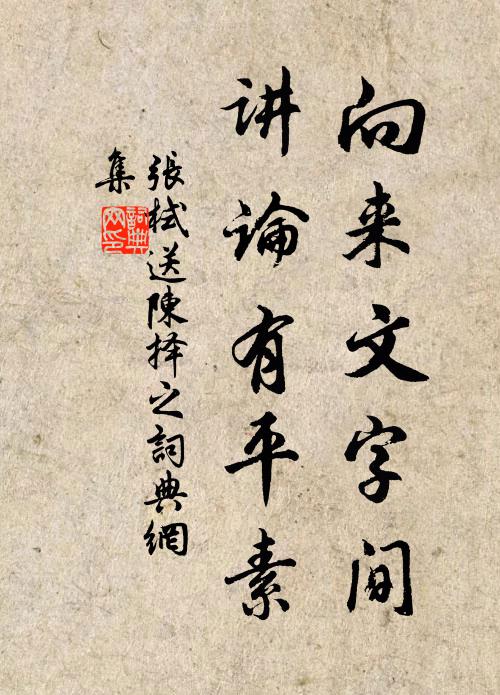 向来文字间
讲論有平素
張栻送陳择之詞典網
集
詞典网印